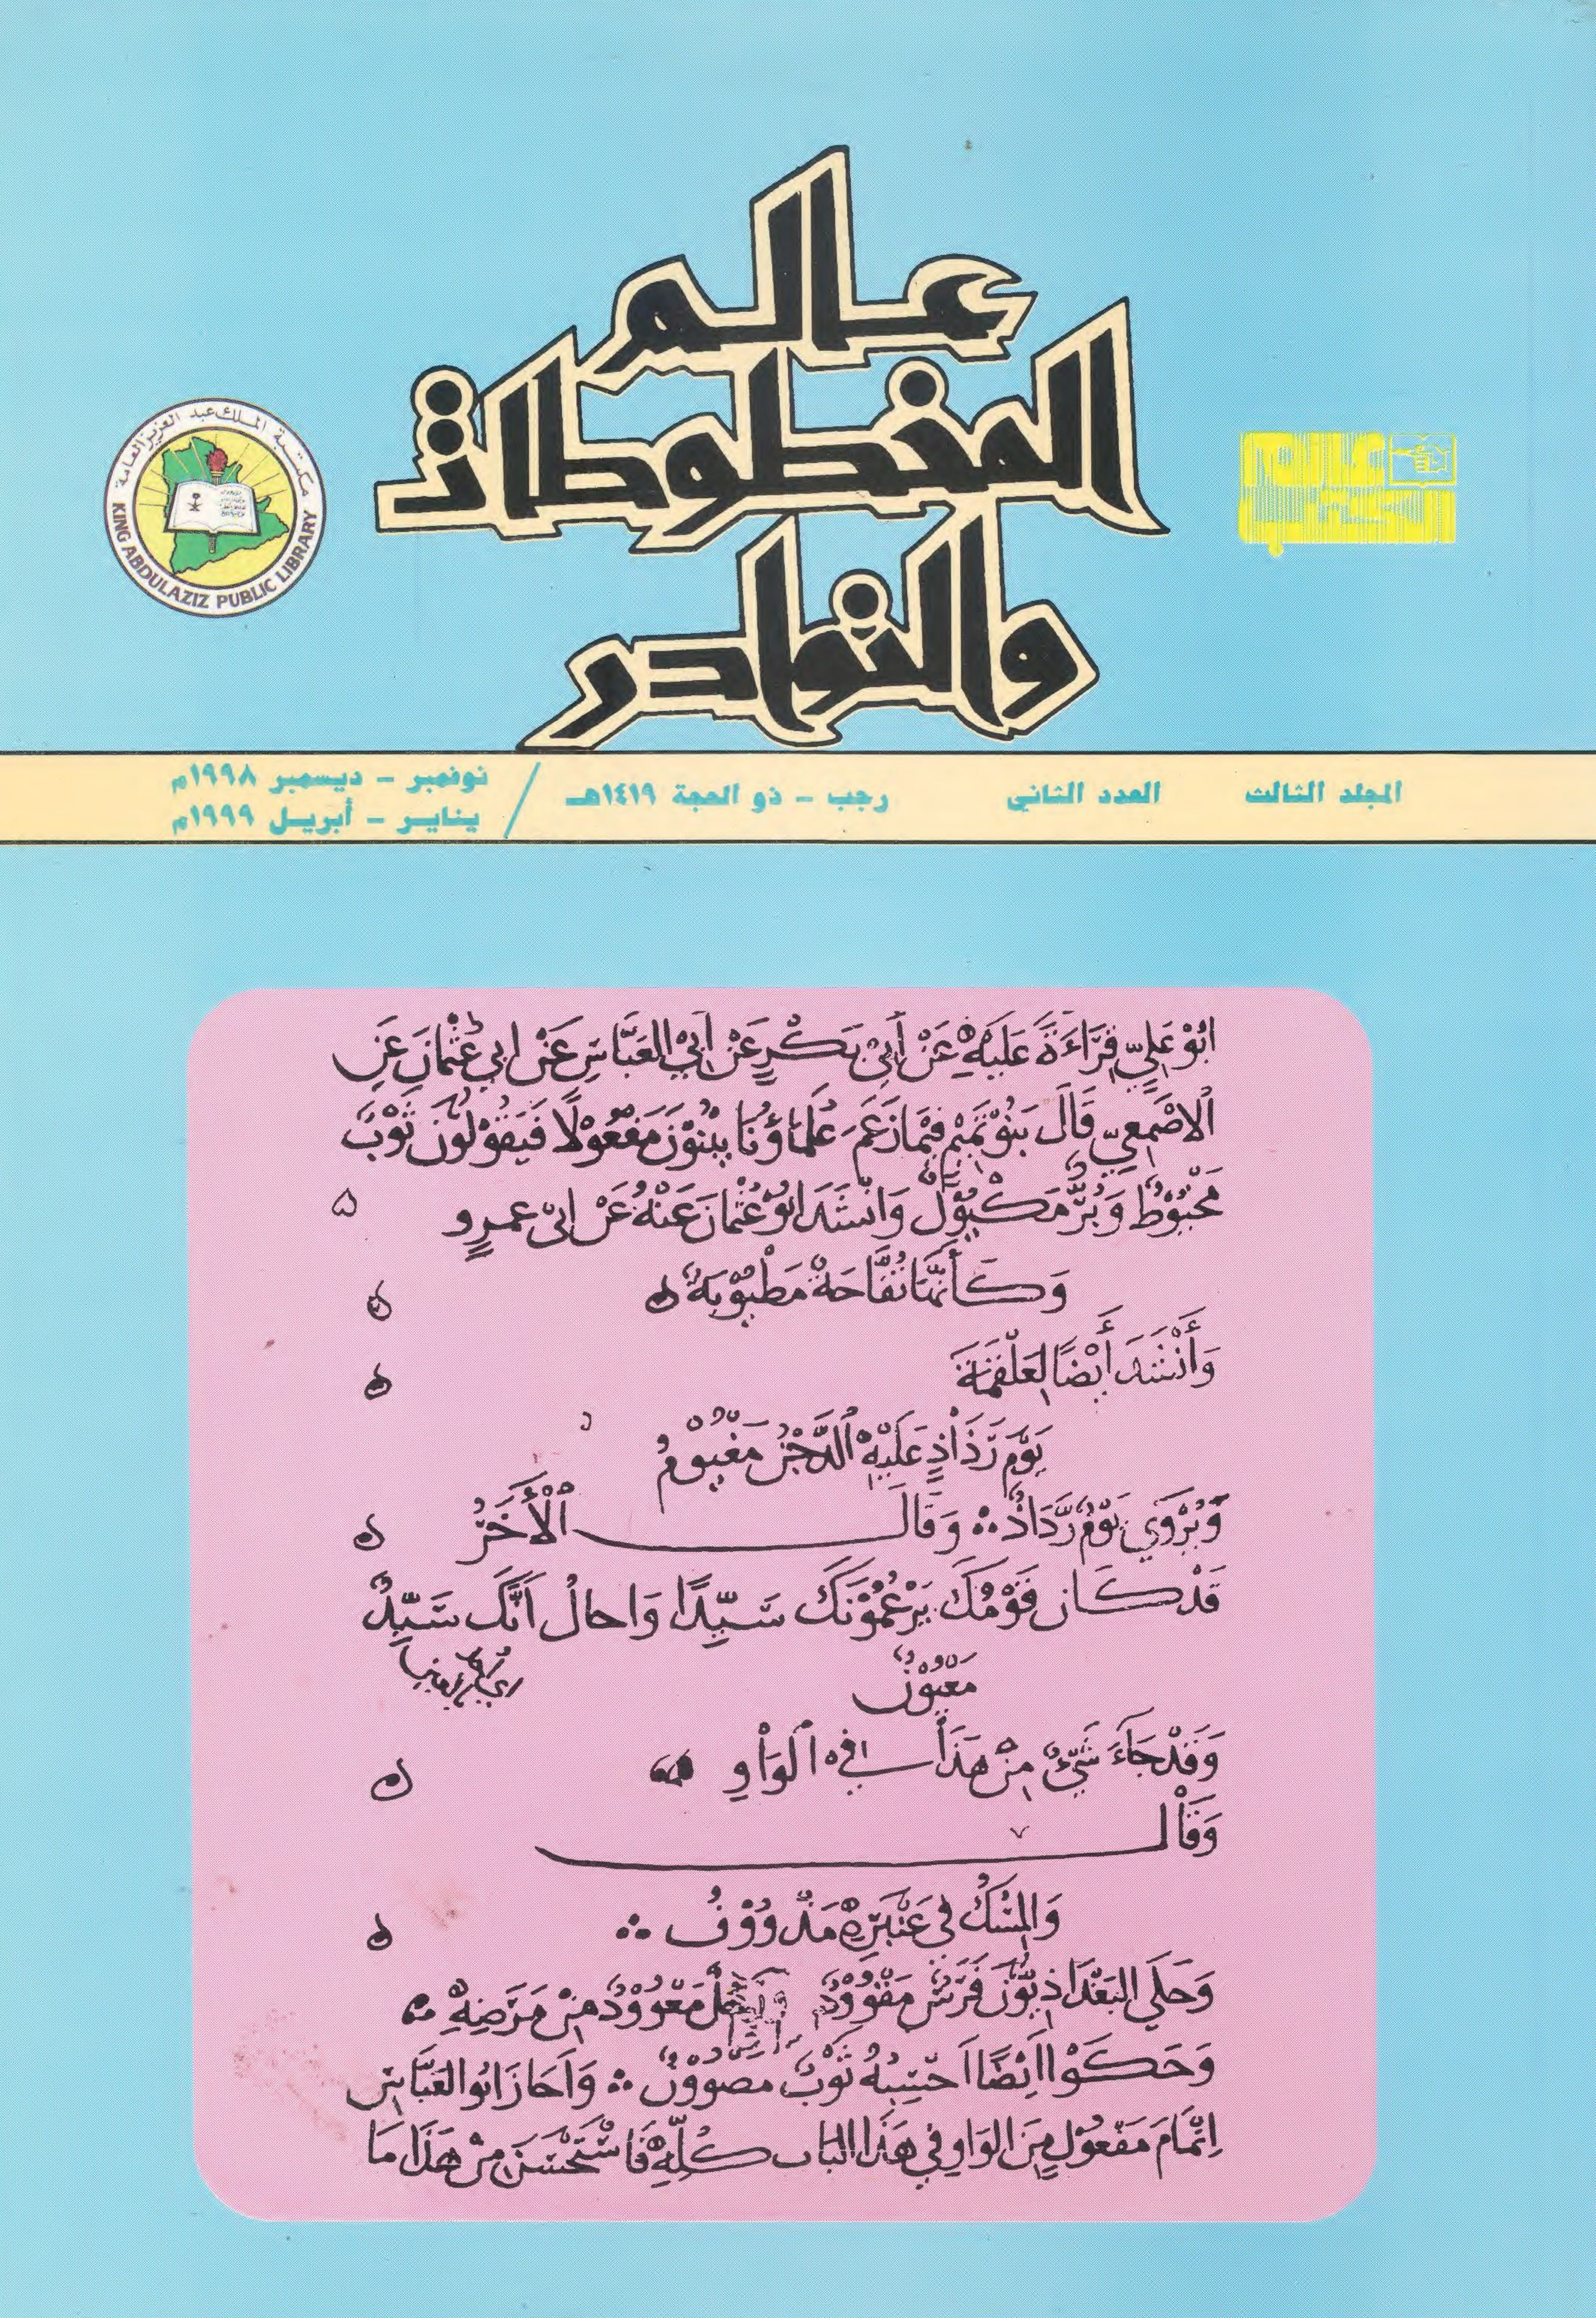 عالم
المخطوطات
والنوادر
عالم
الكتب
مكتبة الملك عبد العزيز العامة
KING ABDULAZIZ PUBLIC LIBRARY
المجلد الثالث العدد الثاني رجب - ذو الحجة ١٤١٩هـ / نوفمبر - ديسمبر ١٩٩٨م
يناير - أبريل ١٩٩٩م
ابُوْ عَلِيٍّ قِرَاءَةً عَلَيْهِ عَنْ أَبِي بَكْرٍ عَنْ أَبِي العَبَّاسِ عَنْ ابي عُثْمَانَ عَنِ
الاصْمَعِيِّ قَالَ بَنُوْ تَمِيْمٍ فِيْمَا زَعَمَ عُلَمَاؤُنَا يُتِمُّوْنَ مَفْعُوْلًا فَيَقُوْلُوْنَ ثَوْبٌ
مَخْيُوْطٌ وَبُرٌّ مَكْيُوْلٌ وَانْشَدَ ابُوْ عُثْمَانَ عَنْهُ عَنْ ابِيْ عمرٍو
وَكَأَنَّهَا تُفَّاحَةٌ مَطْيُوْبَةٌ
وَأَنْشَدَ أَيْضًا لِعَلْقَمَةَ
يَوْمُ رَذَاذٍ عَلَيْهِ الدَّجْنُ مَغْيُوْمُ
وَيُرْوَي يَوْمٌ رَذَاذٌ وَقَالَ الْأَخَرُ
قَدْ كَانَ قَوْمُكَ يَزْعُمُوْنَكَ سَيِّدًا وَاخالُ أَنَّكَ سَيِّدٌ
مَعْيُوْنُ
وَقَدْ جَاءَ شَيْءٌ مِنْ هَذَا في الْوَاوِ
وَقَالَ
وَالمِسْكُ في عَنْبَرِهِ مَدْوُوْفُ
وَحَكَي البَغْدَاذِيُّوْنَ فَرَسٌ مَقْوُوْدٌ مَعْوُوْدٌ مِنْ مَرَضِهِ
وَحَكَوْا ايْضًا احْسِبُهُ ثَوْبٌ مصوُوْنٌ وَاَجَازَ ابُو العَبَّاسِ
اِتْمَامَ مَفْعُوْلٍ مِنَ الوَاوِ فِي هَذَا البَابِ كُلِّهِ فَاسْتَحْسَنَ مِنْ هَذَا مَا